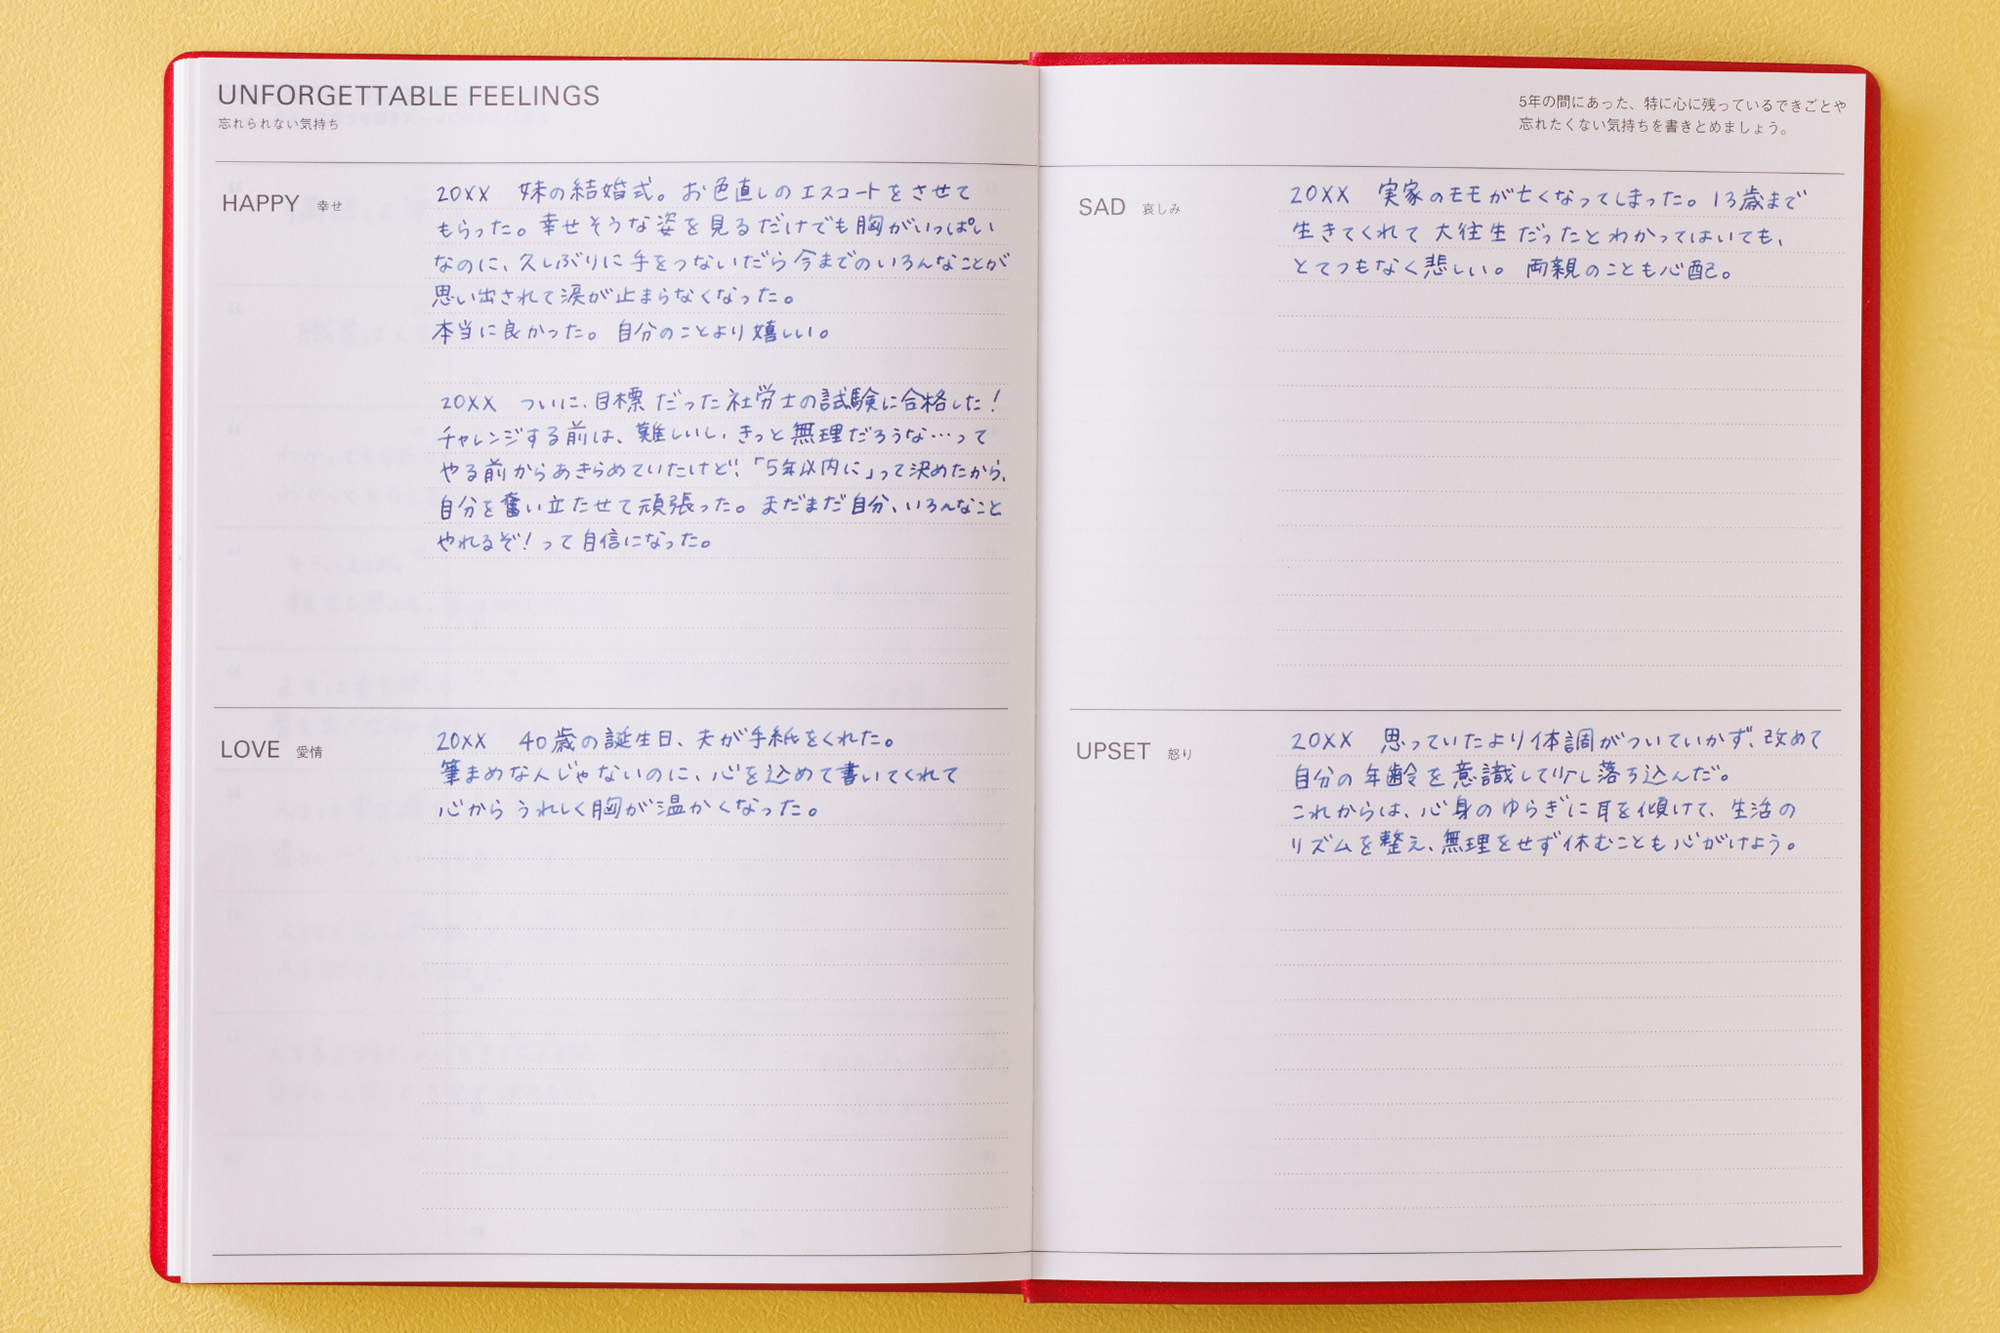 UNFORGETTABLE FEELINGS
忘れられない気持ち
HAPPY 幸せ
20XX 妹の結婚式。お色直しのエスコートをさせて
もらった。幸せそうな姿を見るだけでも胸がいっぱい
なのに、久しぶりに手をつないだら今までのいろんなことが
思い出されて涙が止まらなくなった。
本当に良かった。自分のことより嬉しい。
20XX ついに、目標だった社労士の試験に合格した！
チャレンジする前は、難しいし、きっと無理だろうな…って
やる前からあきらめていたけど、「5年以内に」って決めたから、
自分を奮い立たせて頑張った。まだまだ自分、いろんなこと
やれるぞ！って自信になった。
LOVE 愛情
20XX 40歳の誕生日、夫が手紙をくれた。
筆まめな人じゃないのに、心を込めて書いてくれて
心からうれしく胸が温かくなった。
5年の間にあった、特に心に残っているできごとや
忘れたくない気持ちを書きとめましょう。
SAD 哀しみ
20XX 実家のモモが亡くなってしまった。13歳まで
生きてくれて大往生だったとわかってはいても、
とてつもなく悲しい。両親のことも心配。
UPSET 怒り
20XX 思っていたより体調がついていかず、改めて
自分の年齢を意識して少し落ち込んだ。
これからは、心身のゆらぎに耳を傾けて、生活の
リズムを整え、無理をせず休むことも心がけよう。